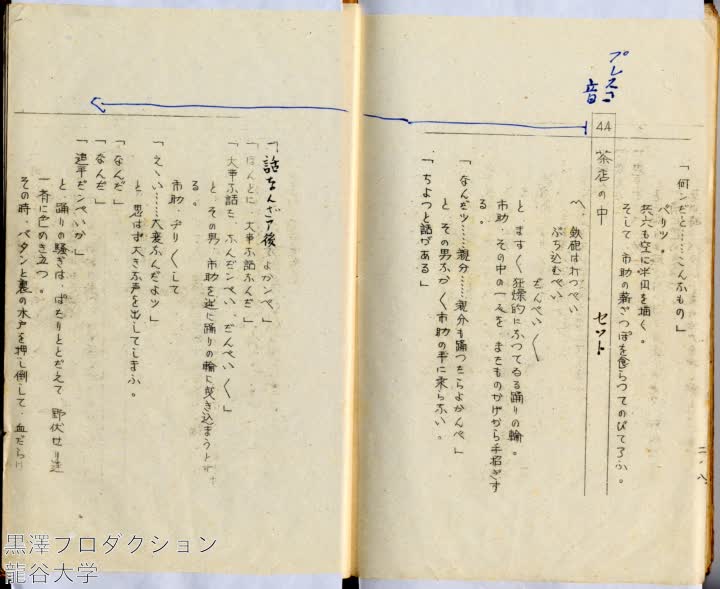 プレスコ
音
「何ンだと……こんふもの」
パリッ。
共六も空に半円を描く。
そして、市助の薪ざつぽを食らつてのびて了ふ。
二ノ八
44
茶店の中
セット
へ、鉄砲は打つべい
ぶち込むべい
だんべい〱
と、ますく狂燥的にふつてゐる踊りの輪。
市助、その中の一人を、またものかげから手招ぎす
る。
「なんだッ……親分……親分も踊つたらよかんべ」
と、その男ふかく市助の手に乗らふい。
「ちよつと話がある」
「話なんざア後でよかンべ」
「ほんとに、大事ふ話ふんだ」
「大事ふ話た、ふんだンべい、だんべい〱」
と、その男、市助を逆に踊りの輪に曵き込まうとす
る。
市助、ヂリ〱して
「えゝい……大変ふんだよッ」
と、思はず大きふ声を出してしまふ。
「なんだ」
「なんだ」
「追手だンべいか」
と、踊りの騒ぎは、ぱたりととだえて、野伏せり達
一斉に色めき立つ。
その時、バタンと裏の木戸を押し倒して、血だらけ
黒澤プロダクション
龍谷大学